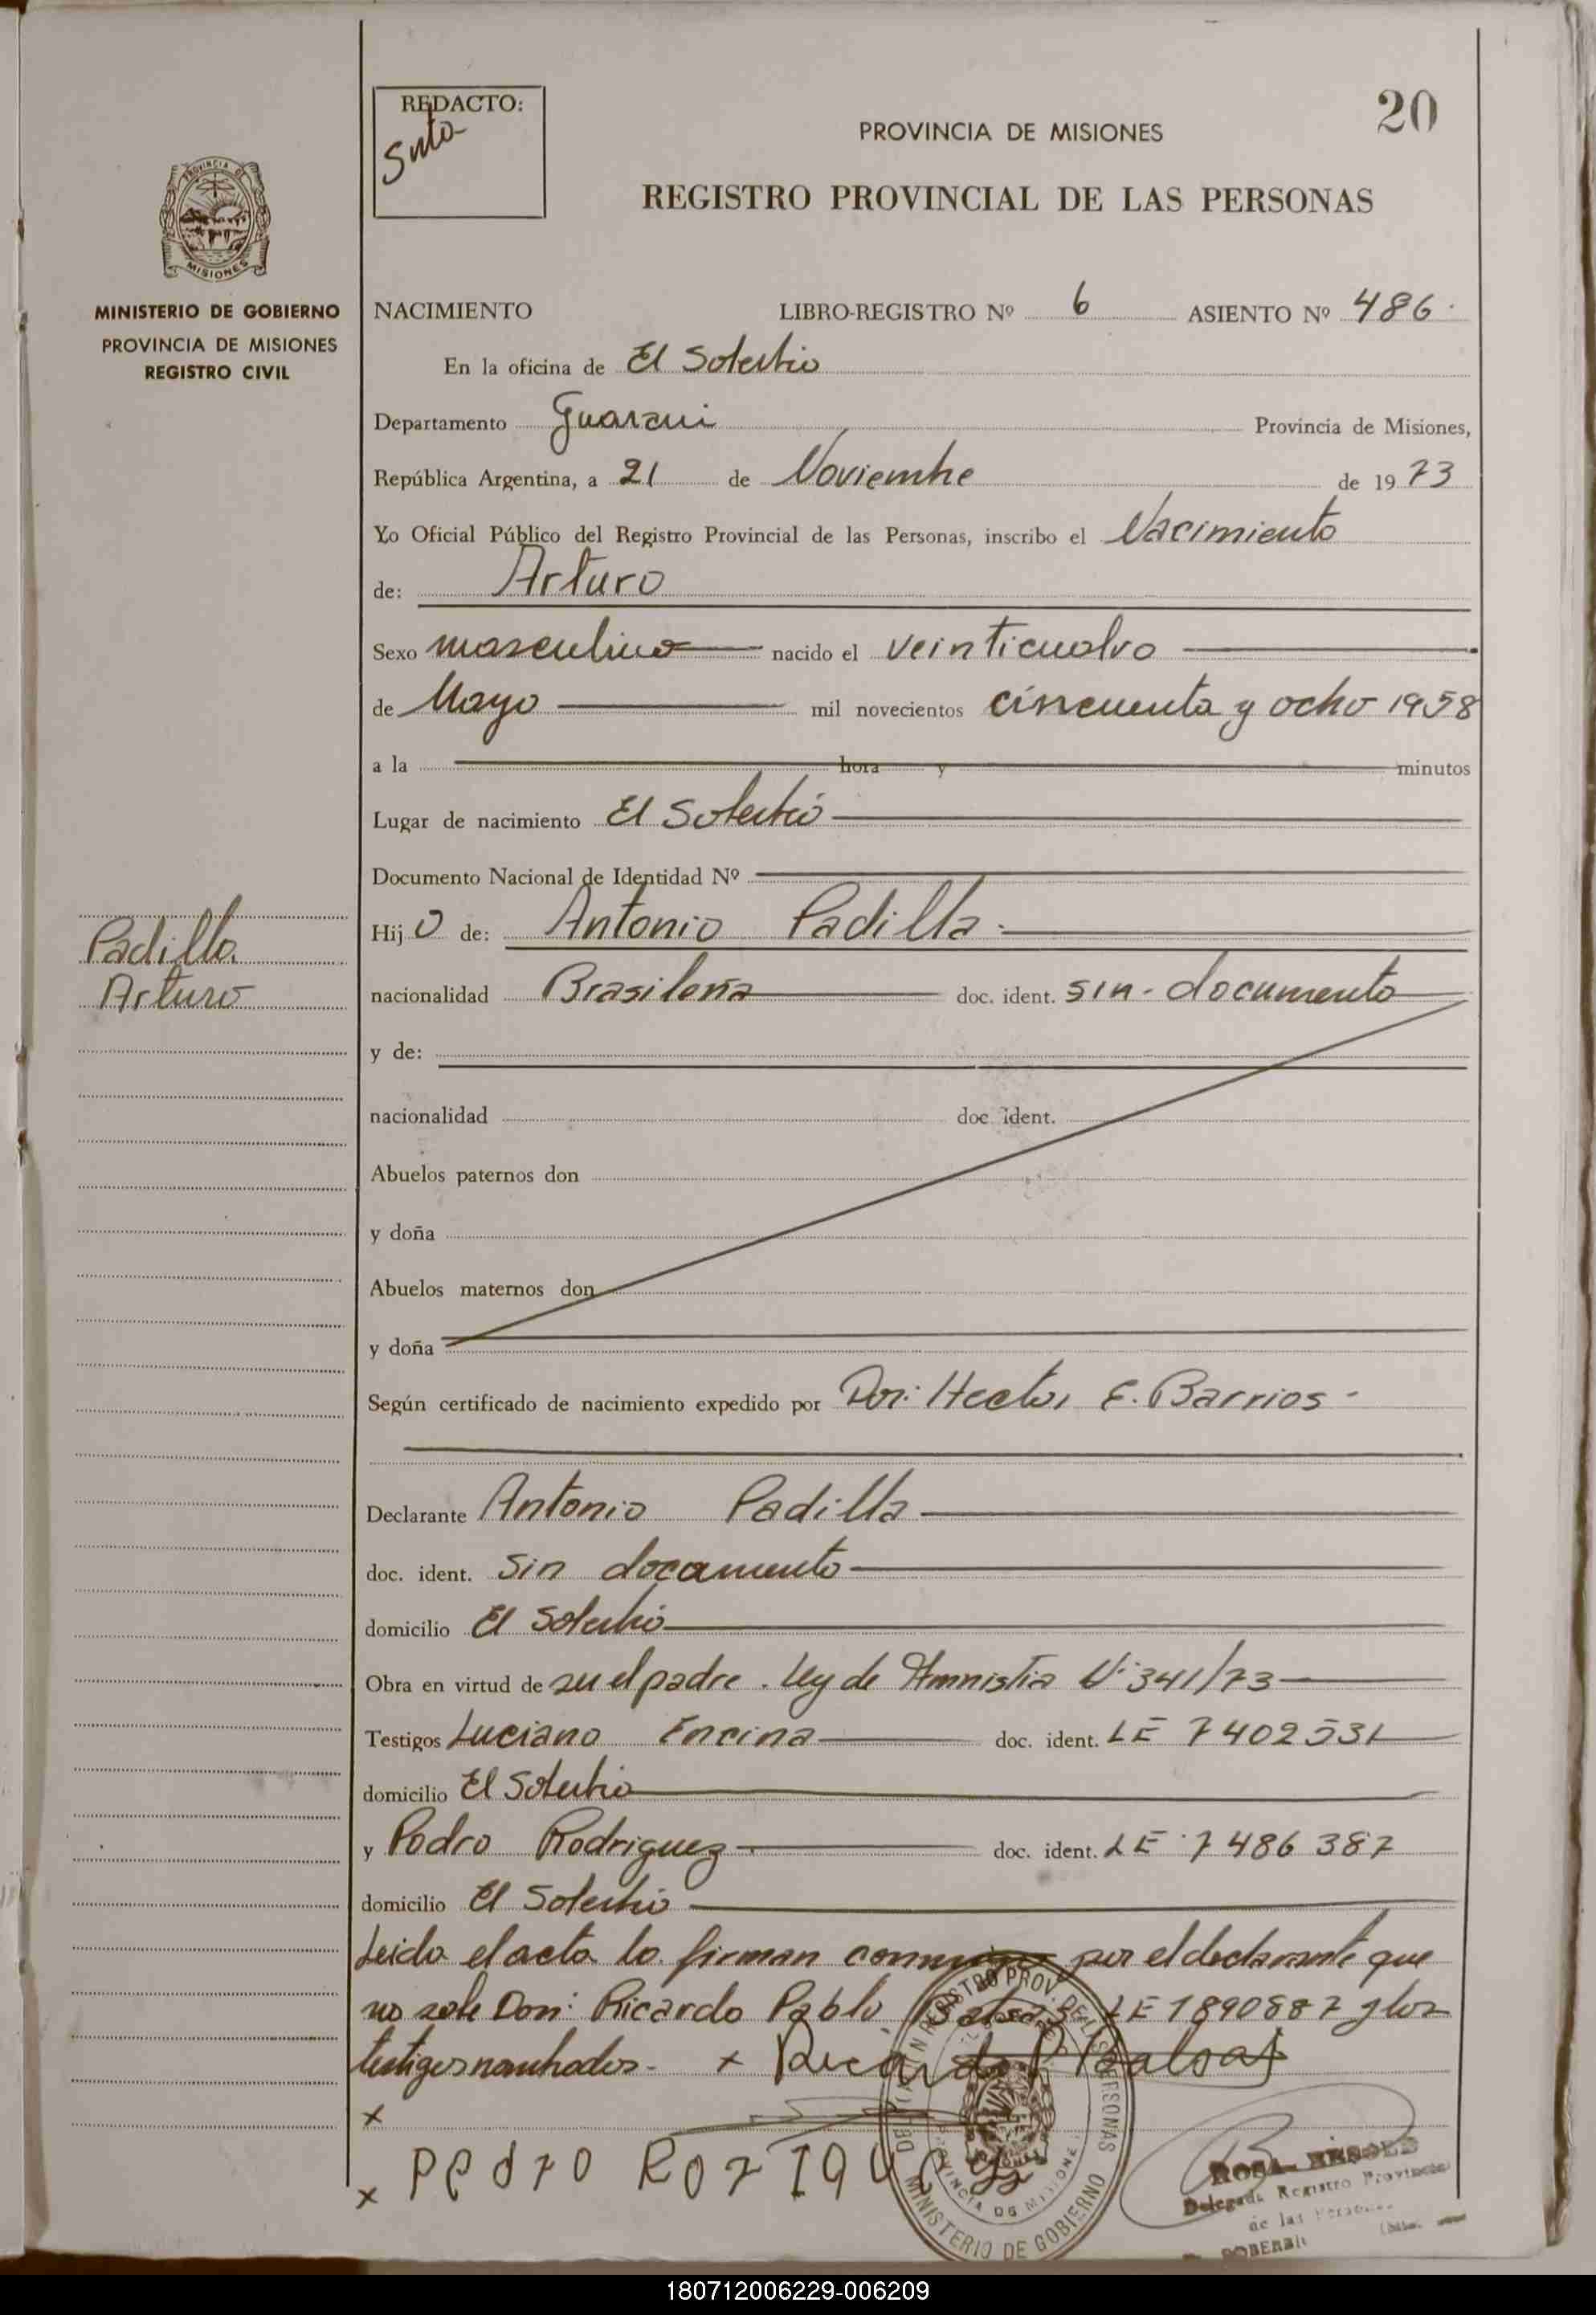 20
REDACTO:
PROVINCIA DE MISIONES
REGISTRO PROVINCIAL DE LAS PERSONAS
PROVINCIA DE
MISIONES
MINISTERIO DE GOBIERNO
PROVINCIA DE MISIONES
REGISTRO CIVIL
NACIMIENTO LIBRO-REGISTRO Nº 6 ASIENTO Nº 486
En la oficina de El Soberbio
Departamento Guarani Provincia de Misiones,
República Argentina, a 21 de Noviembre de 1973
Yo Oficial Público del Registro Provincial de las Personas, inscribo el Nacimiento
de: Arturo
Sexo masculino nacido el veinticuatro
de Mayo mil novecientos cincuenta y ocho 1958
a la hora y minutos
Lugar de nacimiento El Soberbio
Documento Nacional de Identidad Nº
Padilla
Arturo
Hijo de: Antonio Padilla
nacionalidad Brasileña doc. ident. sin documento
y de:
nacionalidad doc. ident.
Abuelos paternos don
y doña
Abuelos maternos don
y doña
Según certificado de nacimiento expedido por Dor: Hector E. Barrios
Declarante Antonio Padilla
doc. ident. Sin documento
domicilio El Soberbio
Obra en virtud de ser el padre. Ley de Amnistia Nº 341/73
Testigos Luciano Encina doc. ident. LE 7402531
domicilio El Soberbio
y Pedro Rodriguez doc. ident. LE 7486387
domicilio El Soberbio
Leida el acta la firman conmigo por el declarante que
no sabe Don: Ricardo Pablo Balsas LE 1890887 y los
testigos nombrados - x Ricardo P Balsas
x
x PEdro RozIguez
REGISTRO PROV. DE LAS PERSONAS
PROVINCIA DE MISIONES
MINISTERIO DE GOBIERNO
ROSA
Delegada Registro Provincial
de las Personas
SOBERBIO
180712006229-006209